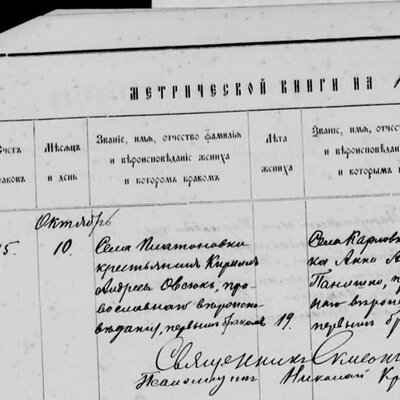 МЕТРИЧЕСКОЙ КНИГИ НА 1
Счетъ
браковъ.
Мѣсяцъ
и день
Званіе, имя, отчество фамилія
и вѣроисповѣданіе жениха
и которомъ бракомъ
Лѣта
жениха
Званіе, имя, отче
и вѣроисповѣда
и которымъ
Октябрь
5. 10. Села Платоновки
крестьянинъ Кириллъ
Андреевъ Овсюкъ, пра-
вославнаго вѣроиспо-
вѣданія, первымъ бракомъ 19.
Села Карлов
ка Анна А
Панашко, п
наго вѣрои
первымъ бр
Священникъ Симеон
Псаломщикъ Николай Кр